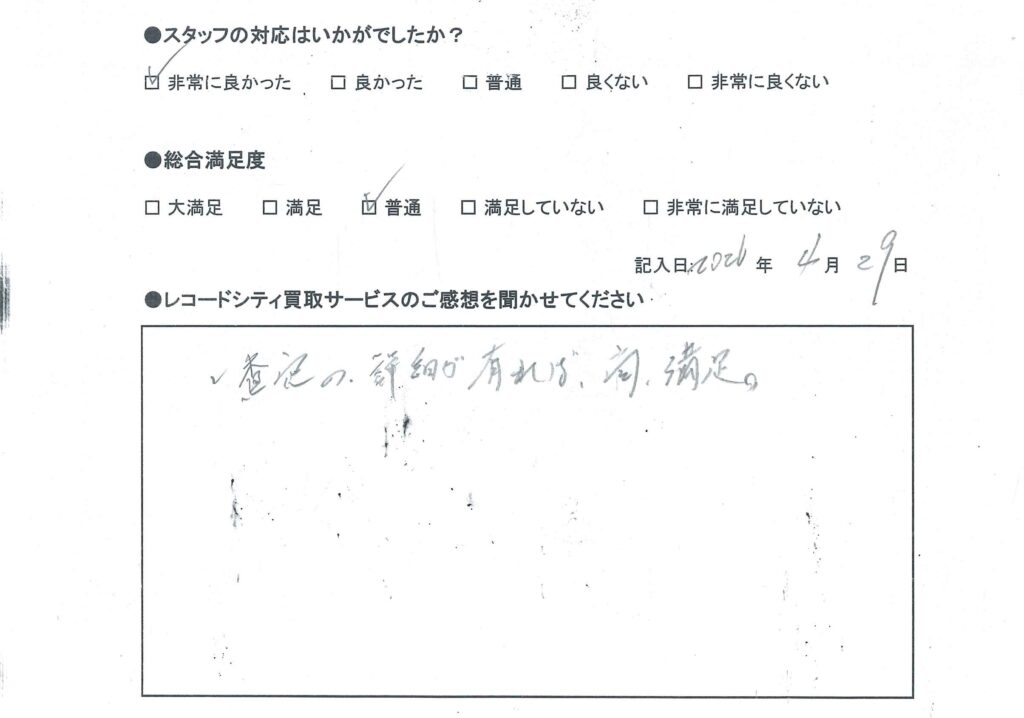 ●スタッフの対応はいかがでしたか？
☑ 非常に良かった □ 良かった □ 普通 □ 良くない □ 非常に良くない
●総合満足度
□ 大満足 □ 満足 ☑ 普通 □ 満足していない □ 非常に満足していない
記入日:2026 年 4 月 29 日
●レコードシティ買取サービスのご感想を聞かせてください
査定の、詳細が有れば、尚、満足。